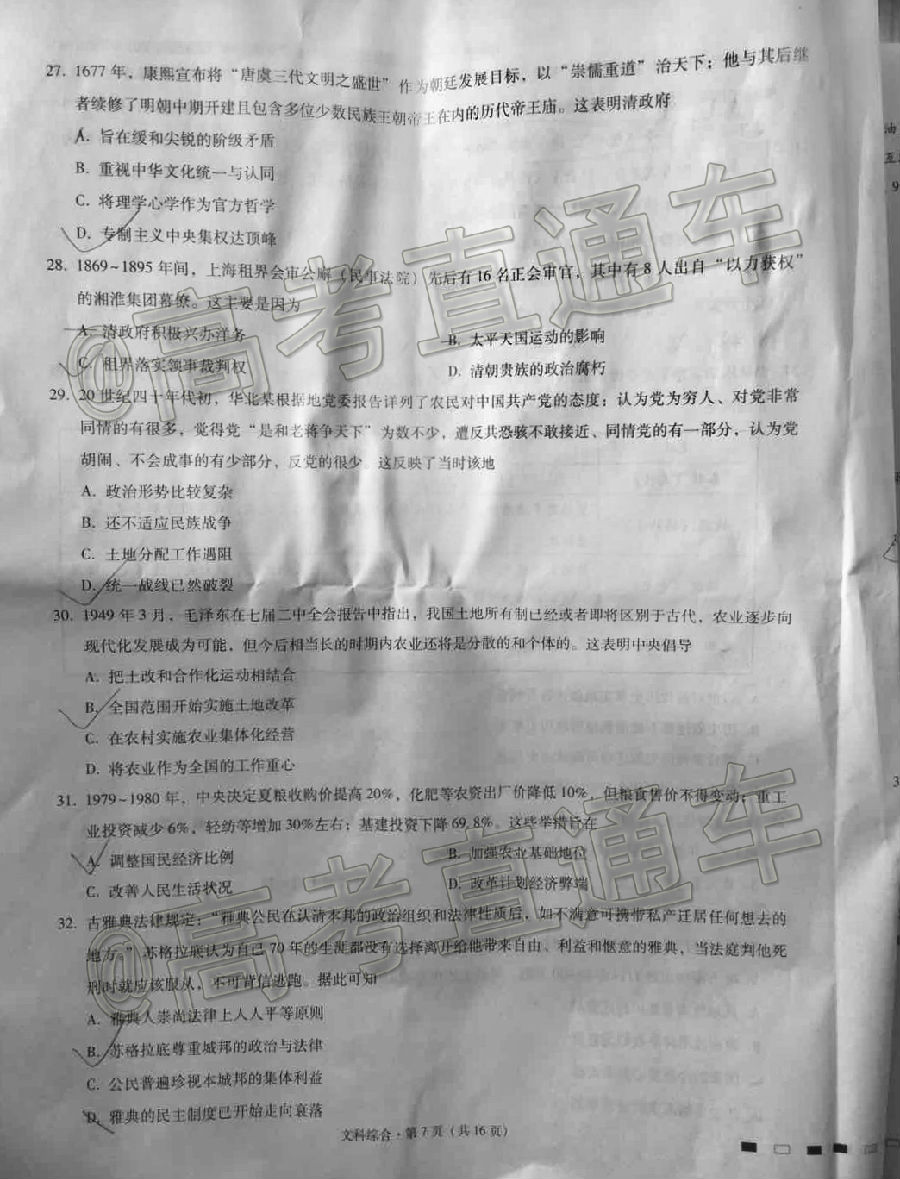 27. 1677年，康熙宣布将“唐虞三代文明之盛世”作为朝廷发展目标，以“崇儒重道”治天下；他与其后继
者续修了明朝中期开建且包含多位少数民族王朝帝王在内的历代帝王庙。这表明清政府
A. 旨在缓和尖锐的阶级矛盾
B. 重视中华文化统一与认同
C. 将理学心学作为官方哲学
D. 专制主义中央集权达顶峰
28. 1869~1895年间，上海租界会审公廨（民事法院）先后有16名正会审官，其中有8人出自“以力获权”
的湘淮集团幕僚。这主要是因为
A. 清政府积极兴办洋务 B. 太平天国运动的影响
C. 租界落实领事裁判权 D. 清朝贵族的政治腐朽
29. 20世纪四十年代初，华北某根据地党委报告详列了农民对中国共产党的态度：认为党为穷人、对党非常
同情的有很多，觉得党“是和老蒋争天下”为数不少，遭反共恐骇不敢接近、同情党的有一部分，认为党
胡闹、不会成事的有少部分，反党的很少。这反映了当时该地
A. 政治形势比较复杂
B. 还不适应民族战争
C. 土地分配工作遇阻
D. 统一战线已然破裂
30. 1949年3月，毛泽东在七届二中全会报告中指出，我国土地所有制已经或者即将区别于古代，农业逐步向
现代化发展成为可能，但今后相当长的时期内农业还将是分散的和个体的。这表明中央倡导
A. 把土改和合作化运动相结合
B. 全国范围开始实施土地改革
C. 在农村实施农业集体化经营
D. 将农业作为全国的工作重心
31. 1979~1980年，中央决定夏粮收购价提高20%，化肥等农资出厂价降低10%，但粮食售价不得变动；重工
业投资减少6%，轻纺等增加30%左右；基建投资下降69.8%。这些举措旨在
A. 调整国民经济比例 B. 加强农业基础地位
C. 改善人民生活状况 D. 改革计划经济弊端
32. 古雅典法律规定：“雅典公民在认清本邦的政治组织和法律性质后，如不满意可携带私产迁居任何想去的
地方。”苏格拉底认为自己70年的生涯都没有选择离开给他带来自由、利益和惬意的雅典，当法庭判他死
刑时就应该服从，不可背信逃跑。据此可知
A. 雅典人崇尚法律上人人平等原则
B. 苏格拉底尊重城邦的政治与法律
C. 公民普遍珍视本城邦的集体利益
D. 雅典的民主制度已开始走向衰落
文科综合·第7页（共16页）
@高考直通车
@高考直通车